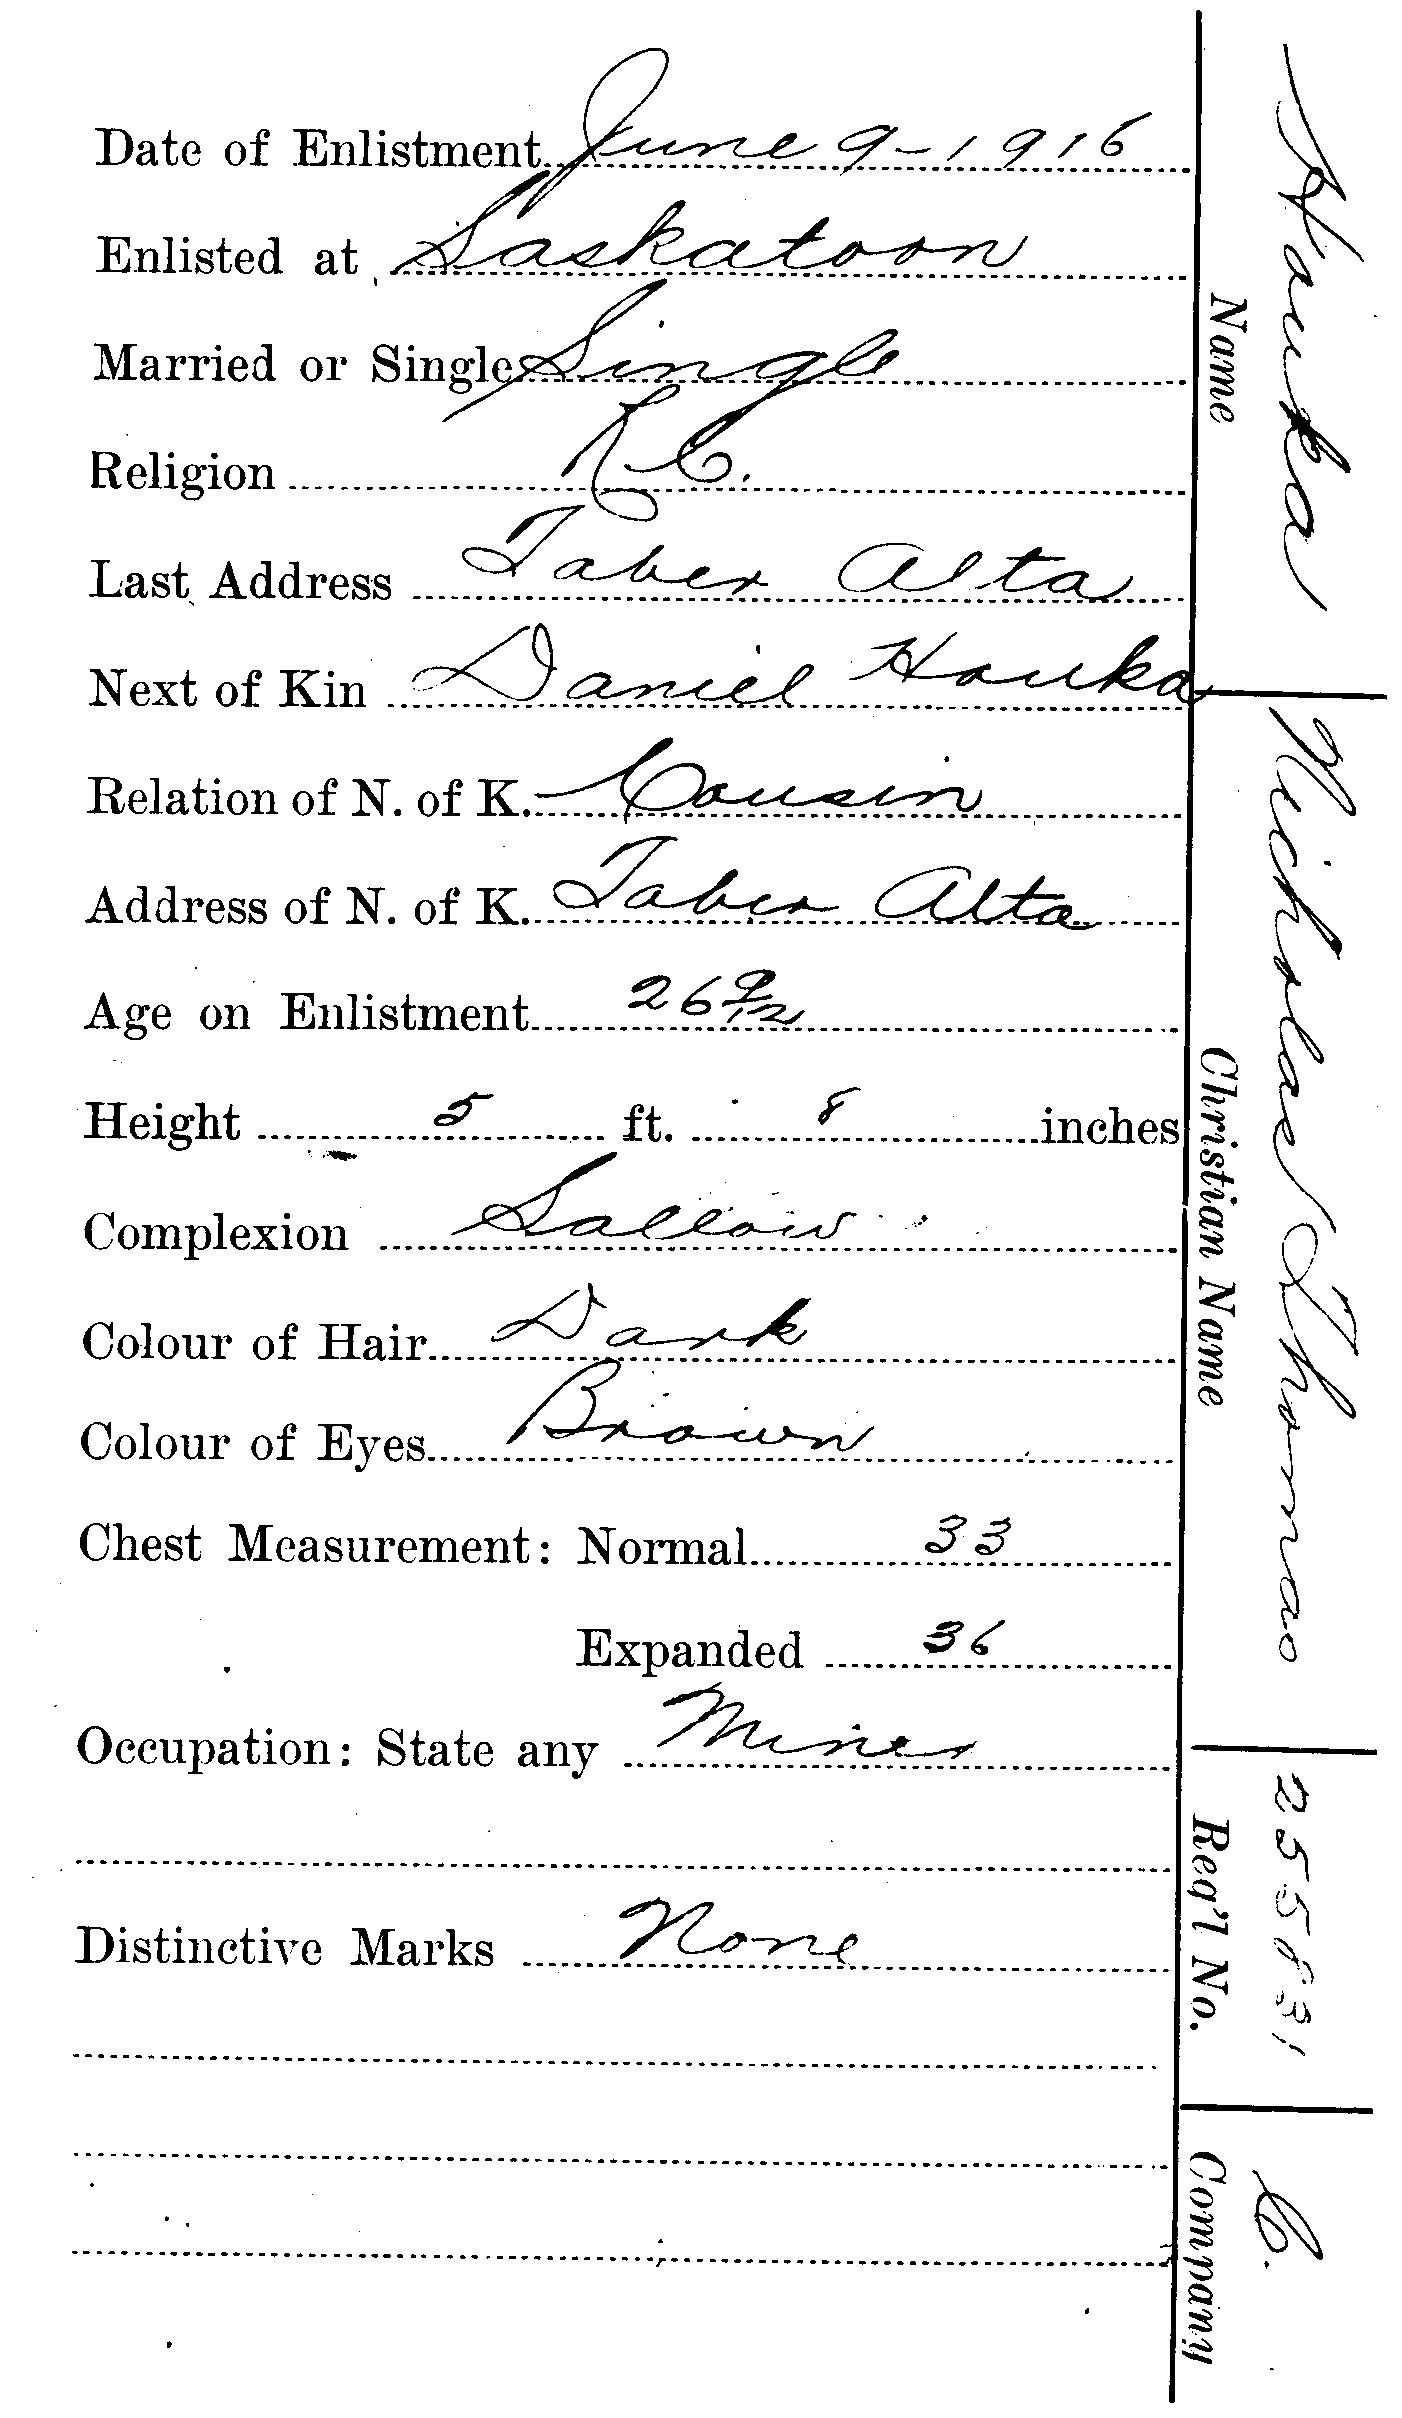 Date of Enlistment June 9-1916
Enlisted at Saskatoon
Married or Single Single
Religion R.C.
Last Address Taber Alta
Next of Kin Daniel Houka
Relation of N. of K. Cousin
Address of N. of K. Taber Alta
Age on Enlistment 26 9/12
Height 5 ft. 8 inches
Complexion Sallow
Colour of Hair Dark
Colour of Eyes Brown
Chest Measurement: Normal 33
Expanded 36
Occupation: State any Miner
Distinctive Marks None
Houka
Name
Nicholas Thomas
Christian Name
255831
Reg'l No.
C.
Company